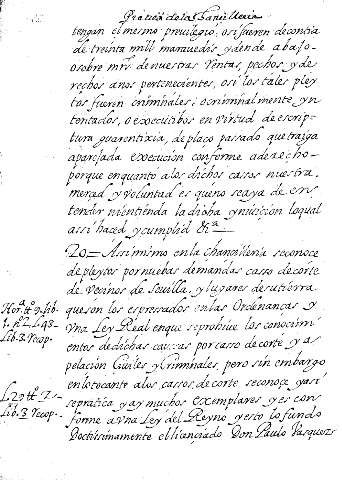 Practica de la Chancilleria
tengan el mesmo previlegio, osi fueren de contia
de treinta mill maravedis, y dende abajo-
osobre mrs. de nuestras Rentas, pechos, y de
rechos anos pertenecientes, osi los tales pley
tos fueren criminales; o criminalmente yn
tentados, o executibos en virtud de escrip-
tura guarentixia, de plaço passado que trayga
aparejada execucion conforme aderecho-
porque en quanto alos dichos cassos nuestra
merced y voluntad es que no se aya de en
tender ni entienda la dicha ynivicion loqual
assi haced y cumplid &a
20= Assimismo en la Chancilleria se conoce
de pleytos por nuebas demandas casso de corte
de vecinos de Sevilla, y lugares de su tierra
que son los espressados en las Ordenanças y
Una Ley Real en que se prohive los conocim
entos de dichas caussas por casso de corte y a
pelacion Civiles y Criminales, pero sin embargo
en lo tocante alos cassos, de corte se conoce y assi
se pratica y ay muchos exemplares y es con
forme a una Ley del Reyno y esto lo fundo
Doctissimamente el licenciado Don Paulo Vasquez
lib.
L. 48-
Lib. 3 Recop.
Lib. 3 Recop-